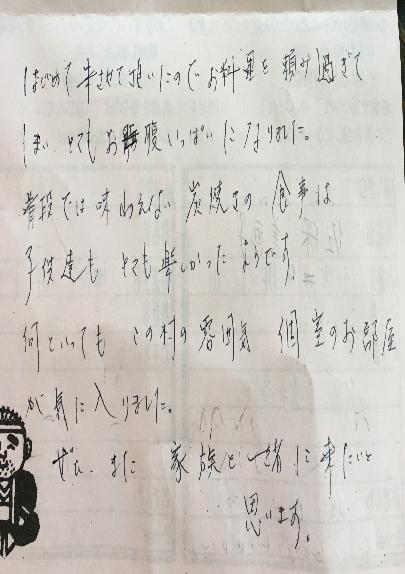 はじめて来させて頂いたのでお料理を頼み過ぎて
しまいとてもお腹いっぱいになりました。
普段では味わえない炭焼きの食事は
子供達もとても楽しかったようです。
何といってもこの村の雰囲気 個室のお部屋
が気に入りました。
ぜひ、また 家族と一緒に来たいと
思います。